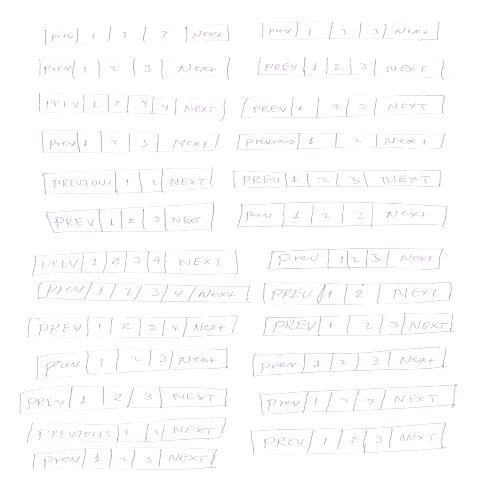 prev 1 2 3 Next prev 1 2 3 Next
prev 1 2 3 Next PREV 1 2 3 NEXT
PREV 1 2 3 4 NEXT PREV 1 2 3 NEXT
prev 1 2 3 Next previous 1 2 Next
PREVIOUS 1 2 NEXT PREV 1 2 3 NEXT
PREV 1 2 3 NEXT prev 1 2 3 Next
PREV 1 2 3 4 NEXT prev 1 2 3 Next
prev 1 2 3 4 Next PREV 1 2 NEXT
PREV 1 2 3 4 Next PREV 1 2 3 NEXT
prev 1 2 3 Next prev 1 2 3 Next
PREV 1 2 3 NEXT prev 1 2 3 NEXT
PREVIOUS 1 2 NEXT PREV 1 2 3 NEXT
prev 1 2 3 NEXT